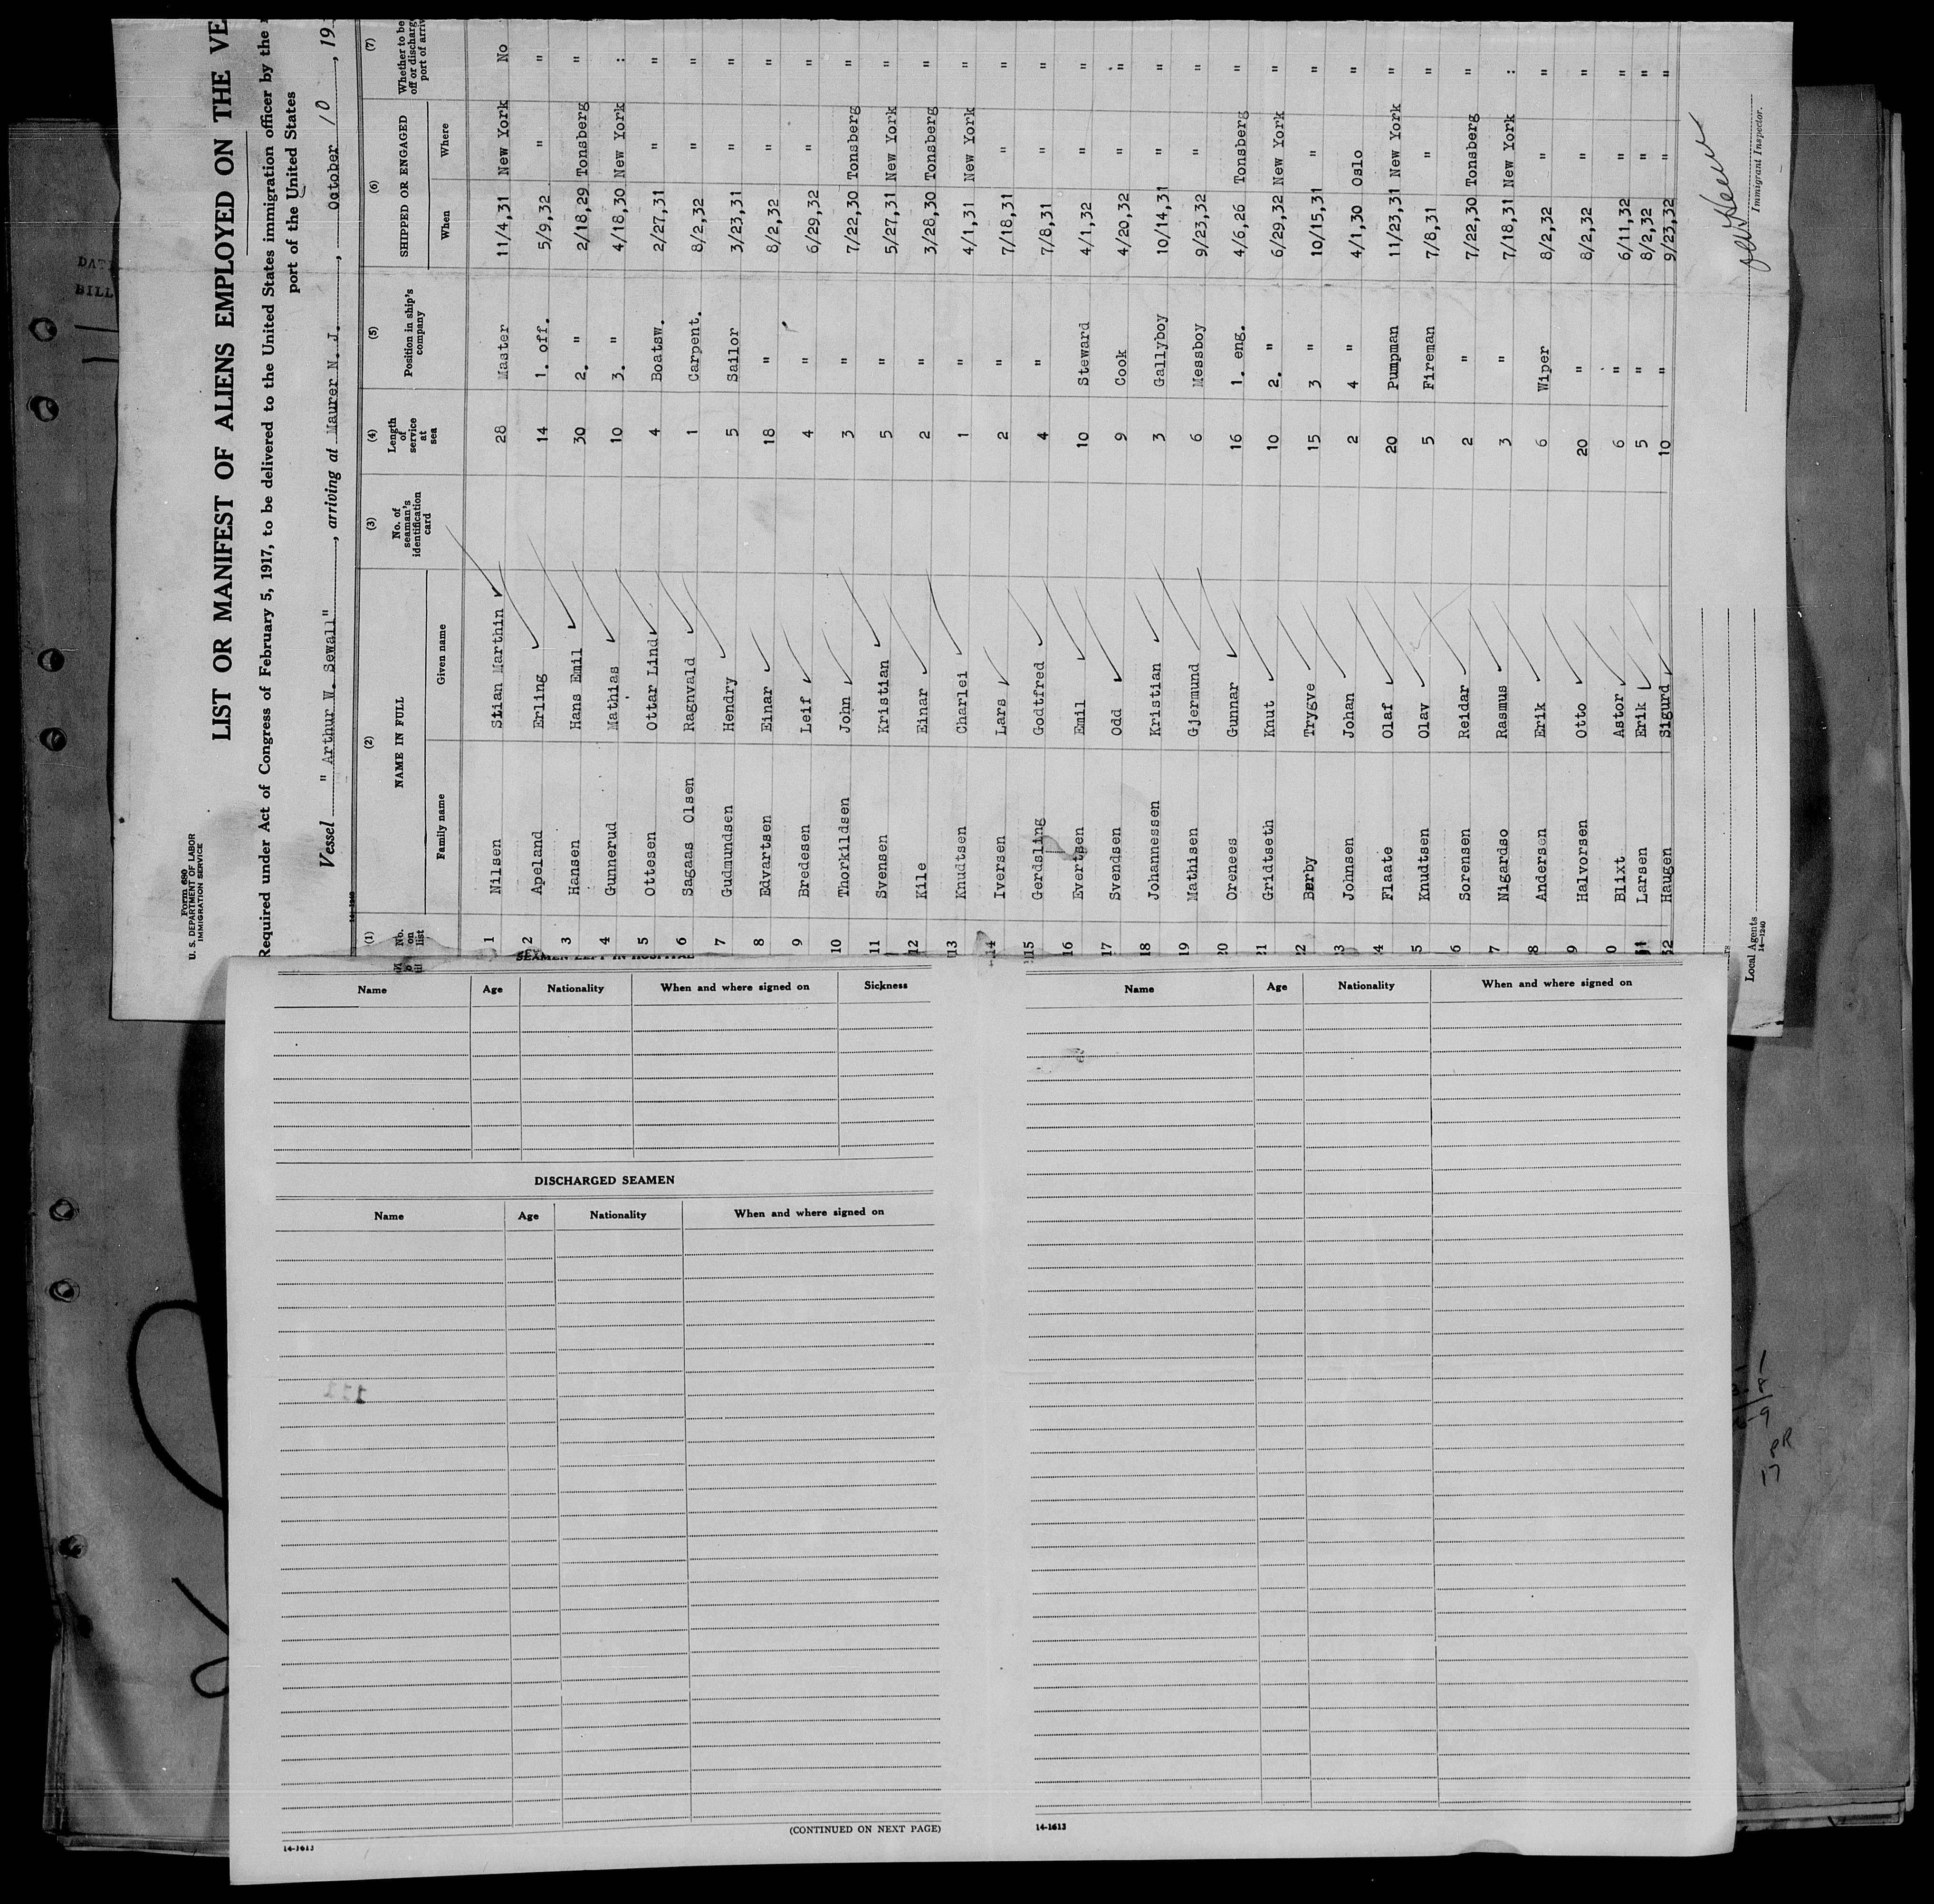 Form 680
U. S. DEPARTMENT OF LABOR
IMMIGRATION SERVICE
LIST OR MANIFEST OF ALIENS EMPLOYED ON THE VE
Required under Act of Congress of February 5, 1917, to be delivered to the United States immigration officer by the
port of the United States
Vessel " Arthur W. Sewall" , arriving at Maurer N. J. , October 10 , 19
(1) (2) (3) (4) (5) (6) (7)
No. on list NAME IN FULL No. of seaman's identification card Length of service at sea Position in ship's company SHIPPED OR ENGAGED Whether to be off or discharg port of arriv
Family name Given name When Where
1 Nilsen Stian Marthin 28 Master 11/4,31 New York No
2 Apeland Erling 14 1. off. 5/9,32 " "
3 Hansen Hans Emil 30 2. " 2/18,29 Tonsberg "
4 Gunnerud Mathias 10 3. " 4/18,30 New York :
5 Ottesen Ottar Lind 4 Boatsw. 2/27,31 " "
6 Sagaas Olsen Ragnvald 1 Carpent. 8/2,32 " "
7 Gudmundsen Hendry 5 Sailor 3/23,31 " "
8 Edvartsen Einar 18 " 8/2,32 " "
9 Bredesen Leif 4 " 6/29,32 " "
10 Thorkildsen John 3 " 7/22,30 Tonsberg "
11 Svensen Kristian 5 " 5/27,31 New York "
12 Kile Einar 2 " 3/28,30 Tonsberg "
13 Knudtsen Charlei 1 " 4/1,31 New York "
14 Iversen Lars 2 " 7/18,31 " "
15 Gerdsling Godtfred 4 " 7/8,31 " "
16 Evertsen Emil 10 Steward 4/1,32 " "
17 Svendsen Odd 9 Cook 4/20,32 " "
18 Johannessen Kristian 3 Gallyboy 10/14,31 " "
19 Mathisen Gjermund 6 Messboy 9/23,32 " "
20 Orenees Gunnar 16 1. eng. 4/6,26 Tonsberg "
21 Gridtseth Knut 10 2. " 6/29,32 New York "
22 Berby Trygve 15 3 " 10/15,31 " "
23 Johnsen Johan 2 4 " 4/1,30 Oslo "
24 Flaate Olaf 20 Pumpman 11/23,31 New York "
5 Knudtsen Olav 5 Fireman 7/8,31 " "
6 Sorensen Reidar 2 " 7/22,30 Tonsberg "
7 Nigardso Rasmus 3 " 7/18,31 New York :
8 Andersen Erik 6 Wiper 8/2,32 " "
9 Halvorsen Otto 20 " 8/2,32 " "
0 Blixt Astor 6 " 6/11,32 " "
31 Larsen Erik 5 " 8/2,32 " "
32 Haugen Sigurd 10 " 9/23,32 " "
Immigrant Inspector.
Local Agents
14-1240
DAT
BILL
SEAMEN LEFT IN HOSPITAL
Name Age Nationality When and where signed on Sickness
DISCHARGED SEAMEN
Name Age Nationality When and where signed on
(CONTINUED ON NEXT PAGE)
14-1613
Name Age Nationality When and where signed on
14-1613